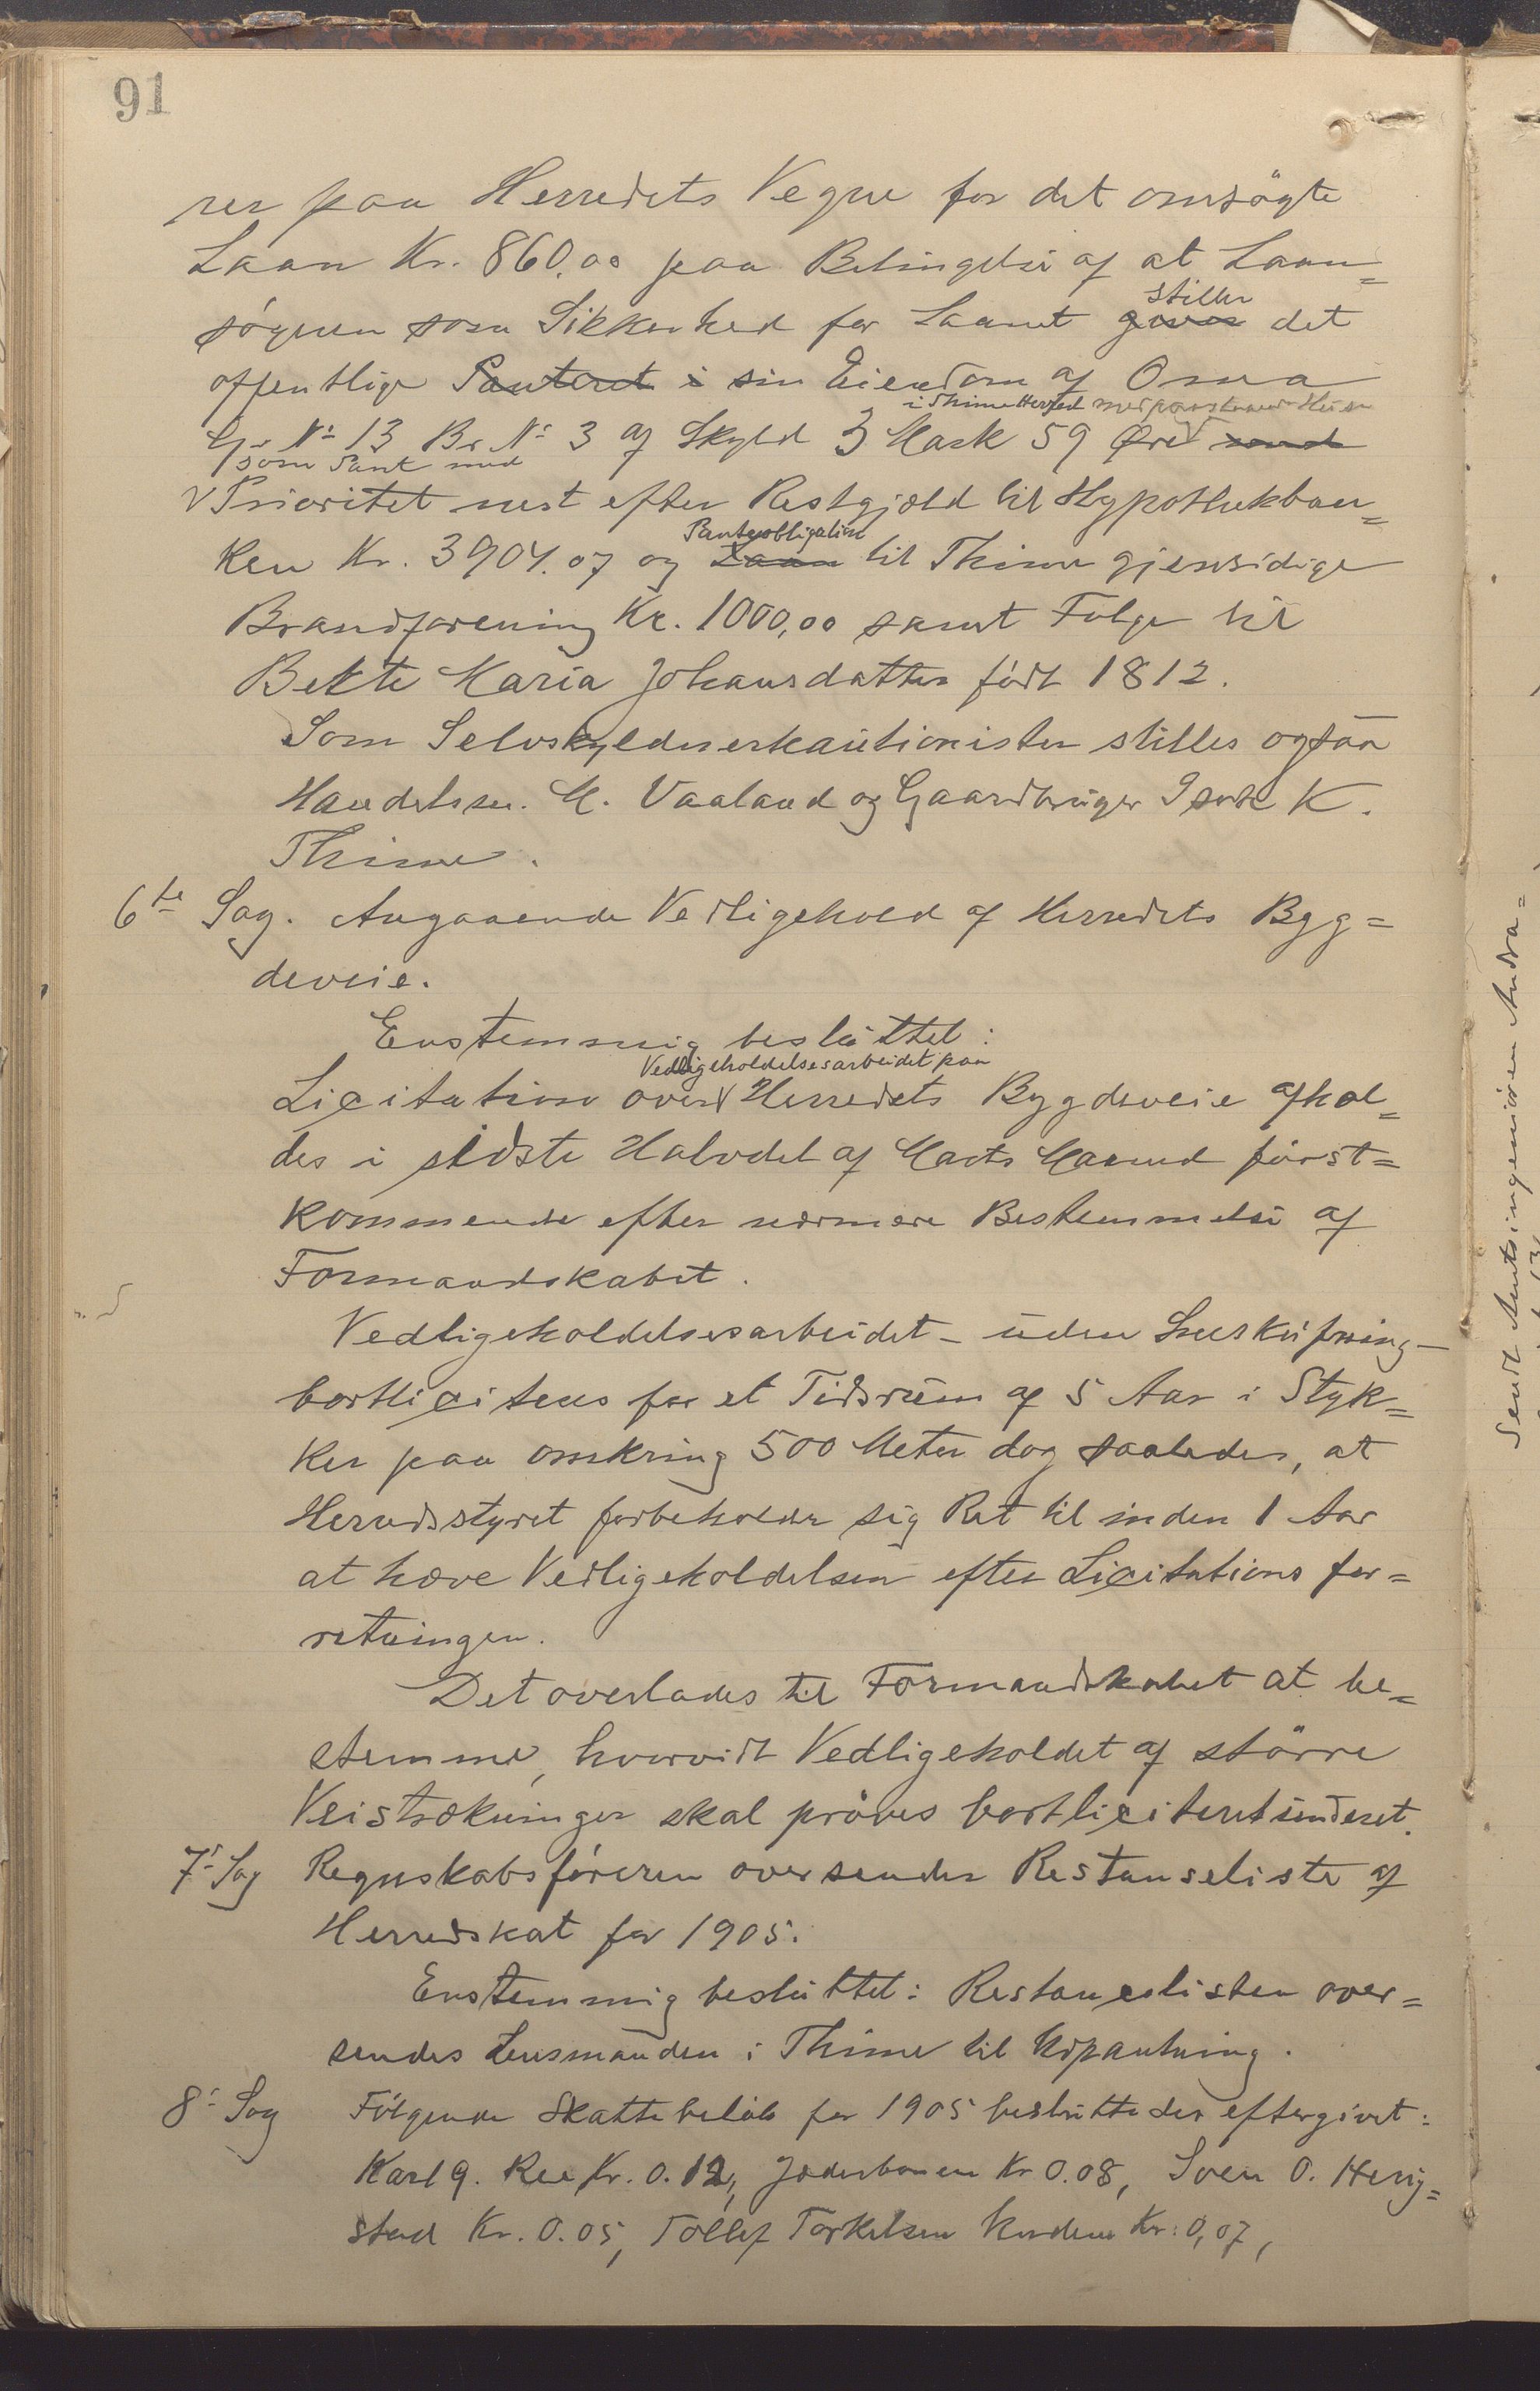 91
rer paa Herredets Vegne for det omsögte
Laan Kr. 860.00 paa Betingelse af at Laan=
søgeren som Sikkerhed for Laanet giver stiller det
offentlige Panteret i sin Eiendom af Onna
i Thime Herred med paastaaende Huse
Gr. No 13 Br. No 3 af Skyld 3 Mark 59 Øre
som Pant med
V Prioritet nest efter Restgjæld til Hypothekban=
Panteobligation
ken Kr. 3904.07 og Laan til Thime gjensidige
Brandforening Kr. 1000,00 samt Følge til
Berte Maria Johansdatter født 1812.
Som Selvskyldnerkautionister stilles ogsaa
Handelsm. M. Vaaland og Gaardbruger Isak K.
Thime.
6te Sag. Angaaende Vedligehold af Herredets Byg=
deveie.
Enstemmig besluttet:
Vedligeholdelsesarbeidet paa
Licitation over V Herredets Bygdeveie afhol=
des i sidste Halvdel af Marts Maaned först=
kommende efter nærmere Bestemmelse af
Formandskabet.
Vedligeholdelsesarbeidet – uden Sneskufning –
bortliciteres for et Tidsrum af 5 Aar i Styk=
ker paa omkring 500 Meter dog saaledes, at
Herredsstyret forbeholder sig Ret til inden 1 Aar
at hæve Vedligeholdelsen efter Licitations for=
retningen.
Det overlades til Formandskabet at be=
stemme, hvorvidt Vedligeholdet af större
Veistrækninger skal pröves bortliciteret underet.
7' Sag Regnskabsföreren oversender Restanseliste af
Herredskat for 1905.
Enstemmig besluttet: Restanselisten over=
sendes Lensmanden i Thime til Udpantning.
8' Sag Fölgende Skattebelöb for 1905 besluttedes eftergivet:
Karl G. Ree Kr. 0.12, Jæderbanen Kr 0.08, Sven O. Herig=
stad Kr. 0.05, Tollef Torkelsen Kr: 0,07,
Sendt Amtsingeniören Andra=